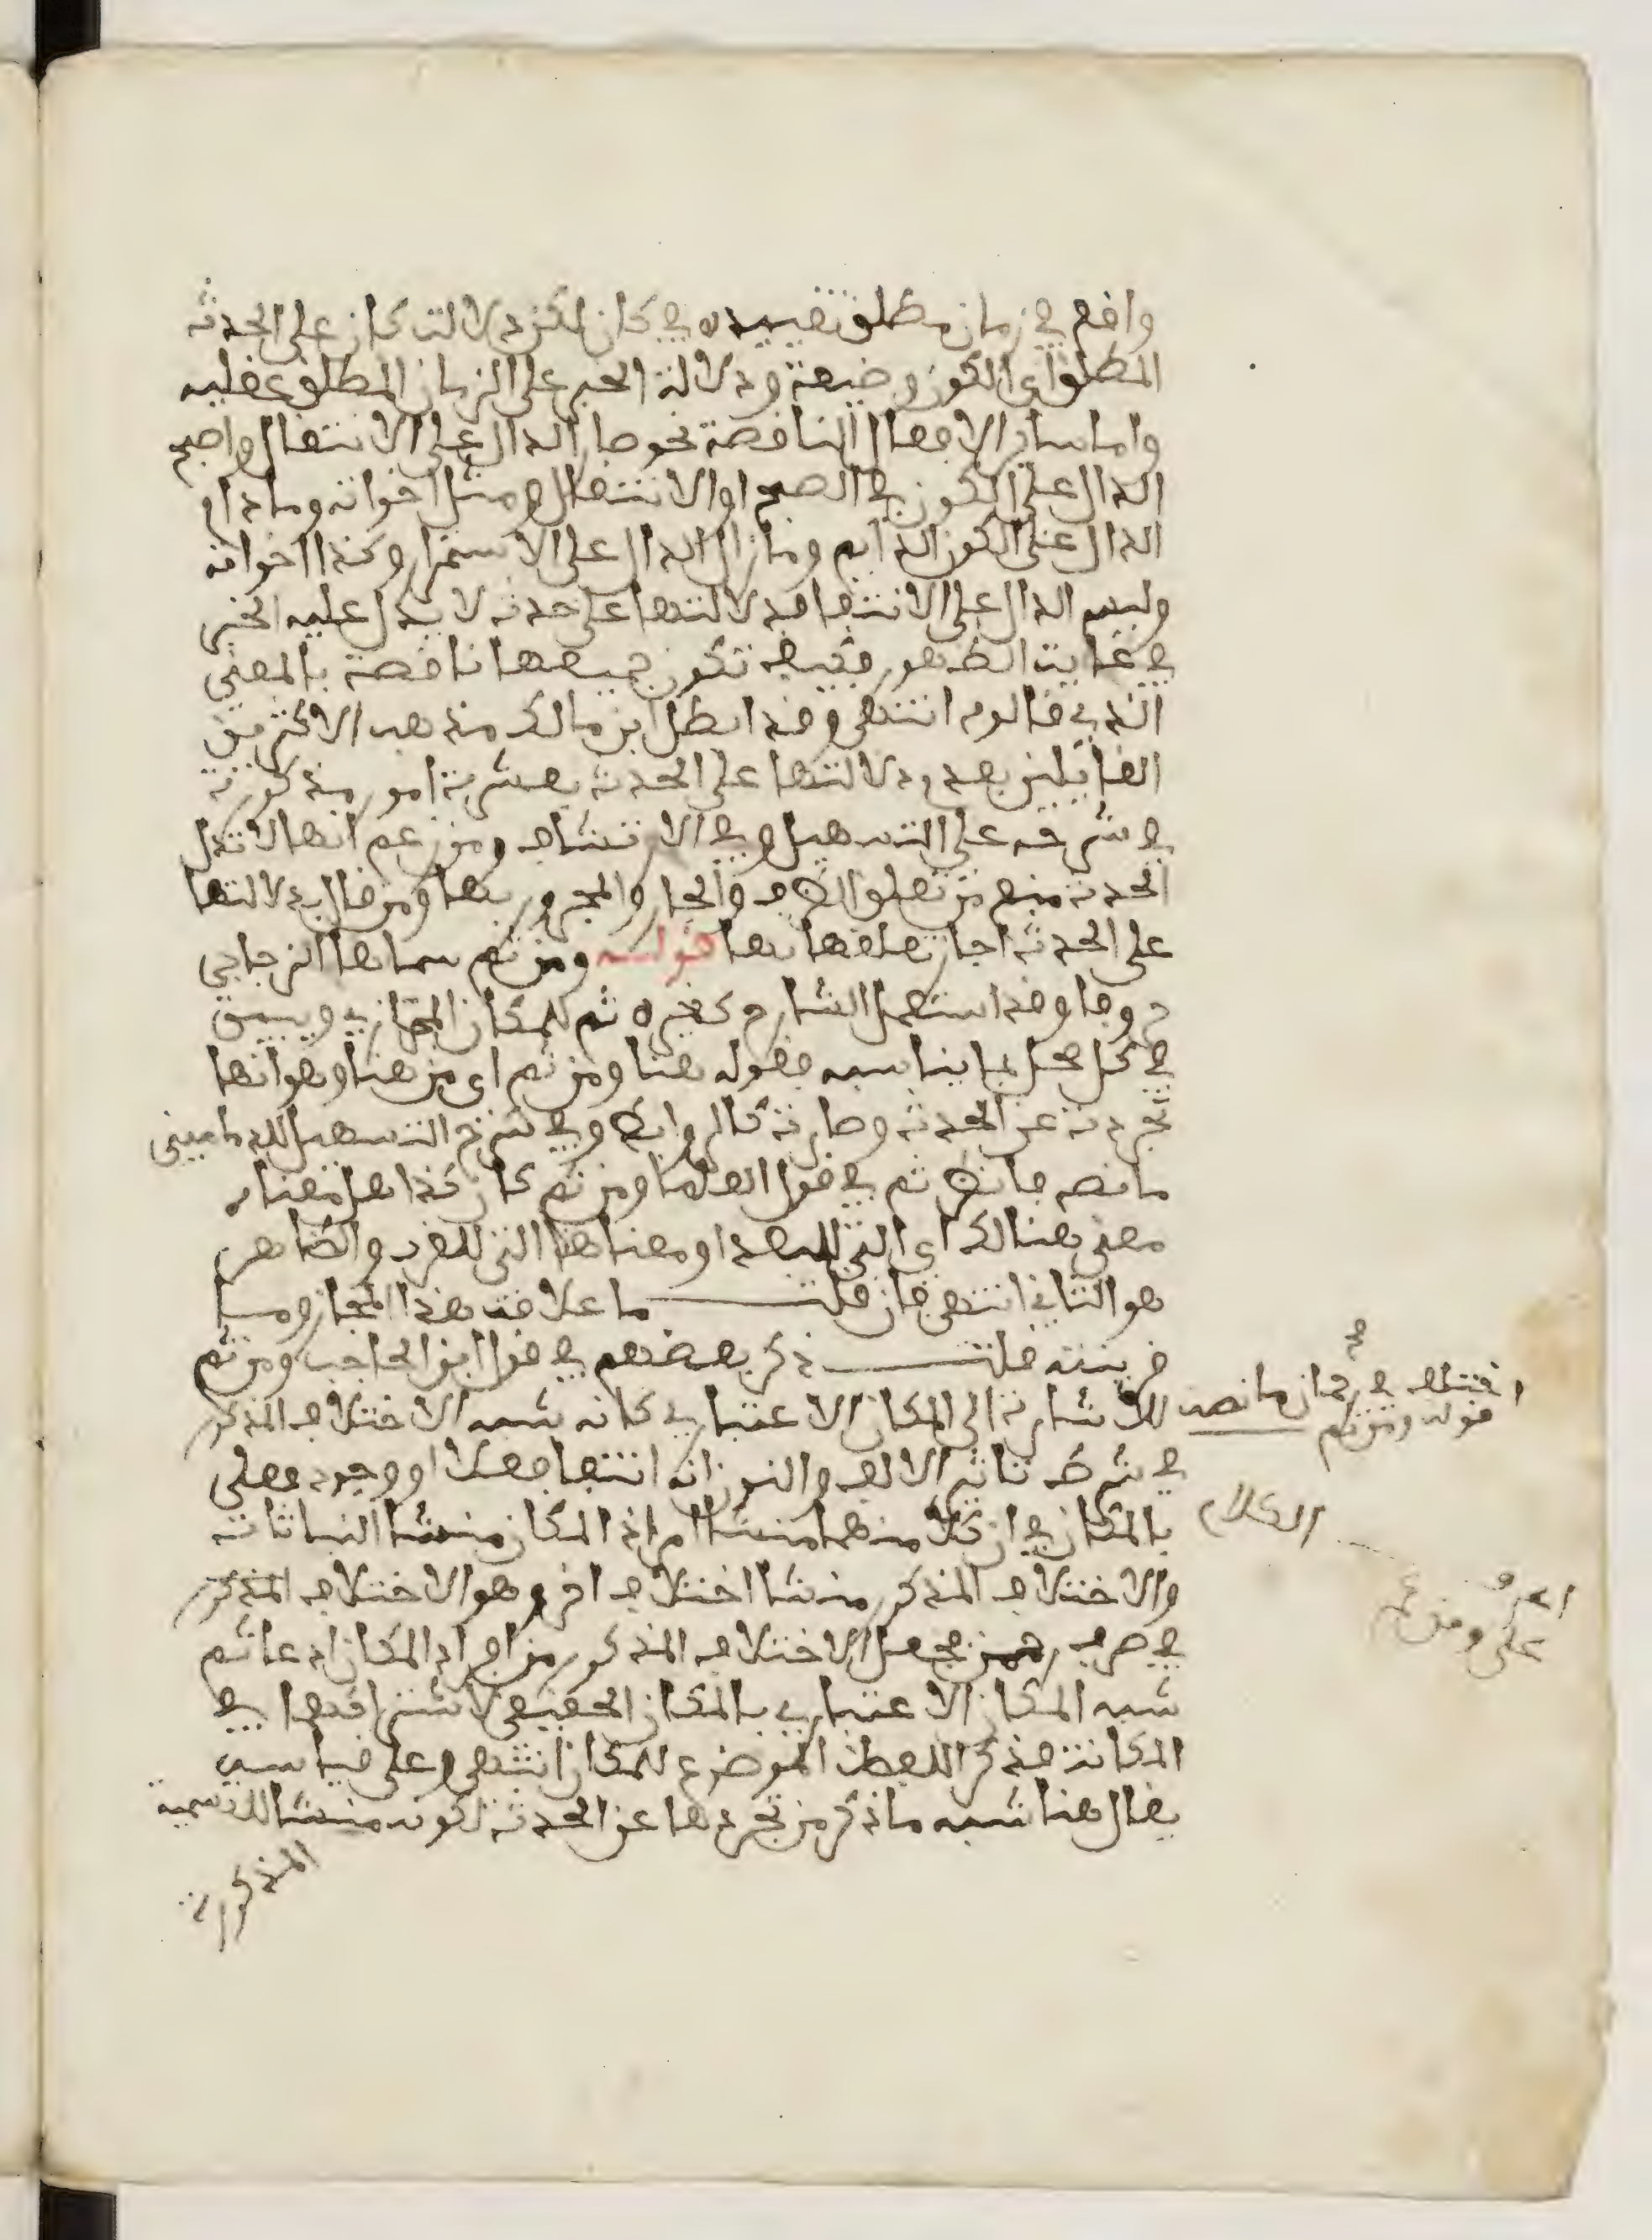 واقع في زمان مطلق تقييده في كان لكن دلالت كان على الحدث
المطلق اي الكون وضيعة ودلالة الخبر على الزمان المطلق عقلية
واما ساير الافعال الناقصة نحو صار الدال على الانتقال واصبح
الدال على الكون في الصبح او الانتقال ومثل اخواته وما دام
الدال على الكون الدايم وما زال الدال على الاستمرار وكذا اخواته
وليس الدال على الانتفا فدلالتها على حدث لا يدل عليه الخبر
في غايت الظهور فكيف تكون جميعها ناقصة بالمعنى
الذي قالوه انتهى وقد ابطل ابن مالك مذهب الاكثرين
القائلين بعدم دلالتها على الحدث بعشرة امور مذكورة
في شرحه على التسهيل وفي الارتشاف ومن زعم انها لا تدل
الحدث منع من تعلق الظرف والجار والمجرور بها ومن قال بدلالتها
على الحدث اجاز تعلقها بها قوله ومن ثم سماها الزجاجي
حروفا وقد استعمل الشارح كغيره ثم للمكان المجازي ويبين
في كل محل بما يناسبه فقوله هنا ومن ثم اي من هنا وهو انها
تجردت عن الحدث وصارت كالروابط وفي شرح التسهيل للدماميني
ما نصه فانظر ثم في قول العلما ومن ثم كان كذا هل معناه
معنى هنالك اي التي للبعد او معنا هنا التي للقرب والظاهر
هو الثاني انتهى فان قلت ما علاقت هذا المجاز وما
قرينته قلت ذكر بعضهم في قول ابن الحاجب ومن ثم
اختلف في رحمان ما نصه صح
قوله ومن ثم
للاشارة الى المكان الاعتباري كانه شبه الاختلاف المذكور
في شرط تاثير الالف والنون انه انتفا فعلانة او وجود فعلى
بالمكان في ان كلا منهما منشا امر اذ المكان منشا النباتات
والاختلاف المذكور منشا اختلاف اخر وهو الاختلاف المذكور
في صرف رحمن فجعل الاختلاف المذكور من افراد المكان ادعا ثم
شبه المكان الاعتباري بالمكان الحقيقي لاشتراكهما في
المكانة فذكر اللفظ الموضوع للمكان انتهى وعلى قياسه
يقال هنا شبه ما ذكر من تجردها عن الحدث لكونه منشا للتسمية
المذكورة
الكلام
على ومن ثم